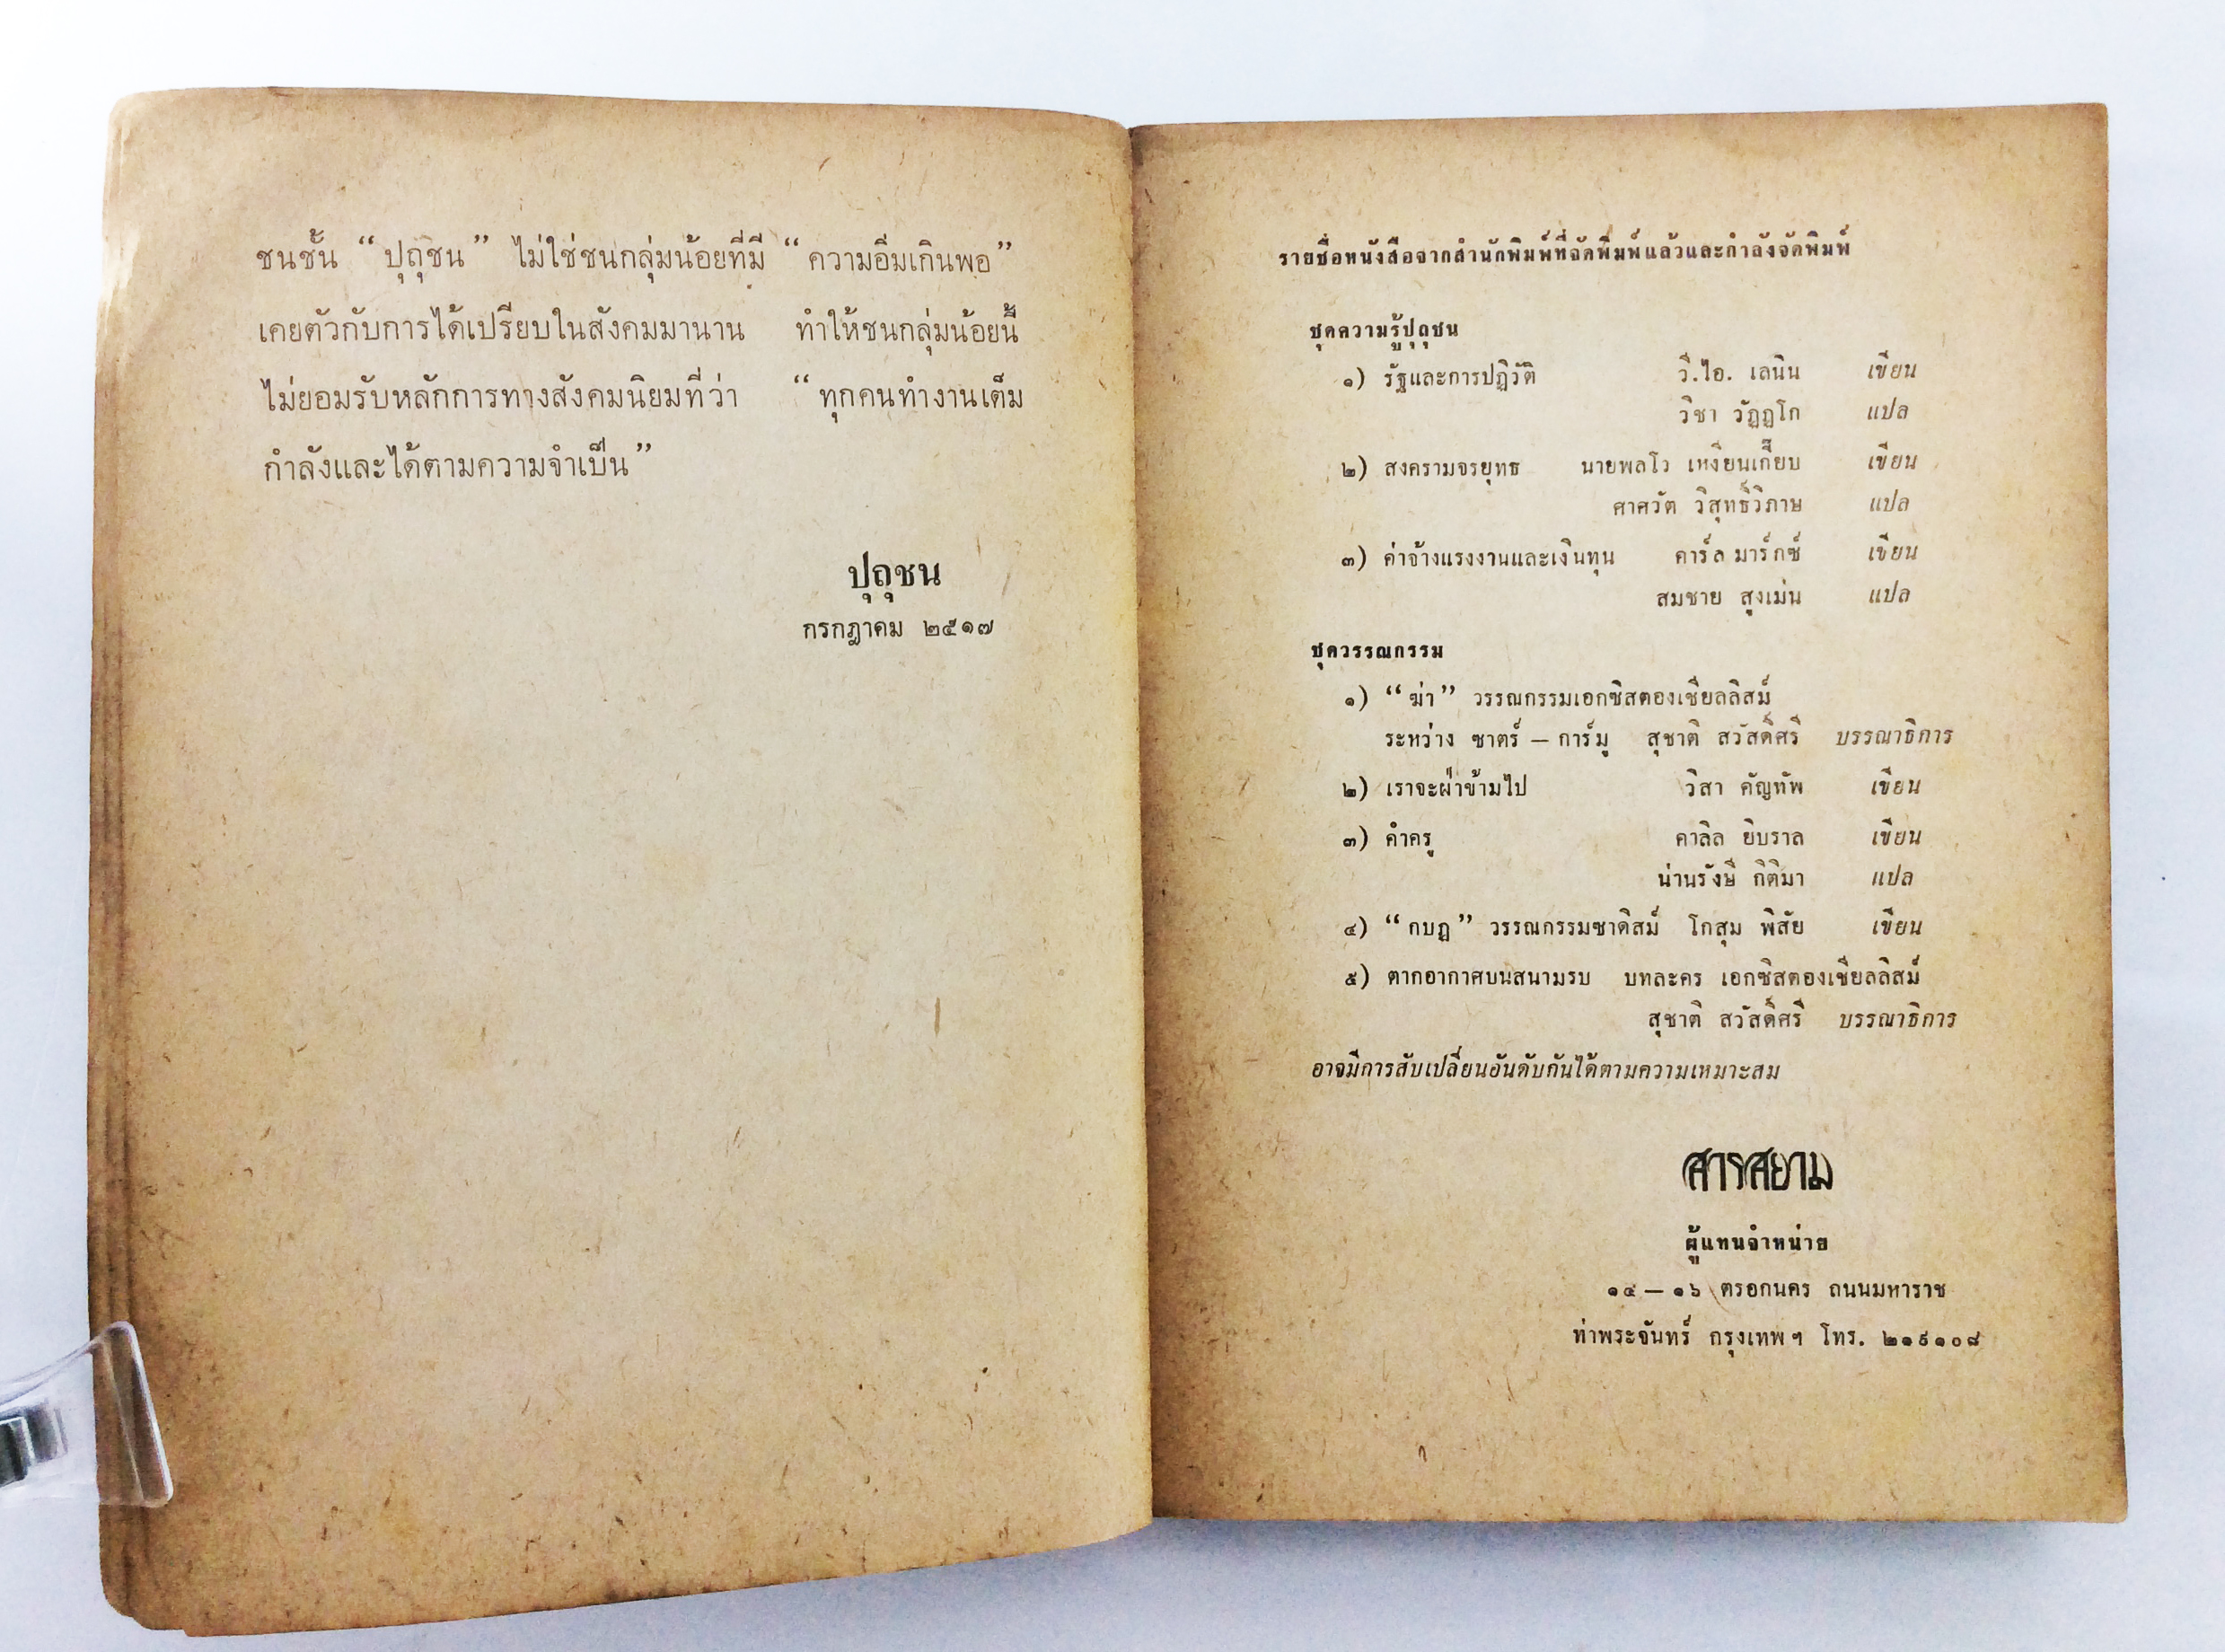 ชนชั้น “ปุถุชน” ไม่ใช่ชนกลุ่มน้อยที่มี “ความอิ่มเกินพอ”
เคยตัวกับการได้เปรียบในสังคมมานาน ทำให้ชนกลุ่มน้อยนี้
ไม่ยอมรับหลักการทางสังคมนิยมที่ว่า “ทุกคนทำงานเต็ม
กำลังและได้ตามความจำเป็น”
ปุถุชน
กรกฎาคม ๒๕๑๗
รายชื่อหนังสือจากสำนักพิมพ์ที่จัดพิมพ์แล้วและกำลังจัดพิมพ์
ชุดความรู้ปุถุชน
๑) รัฐและการปฏิวัติ วี.ไอ. เลนิน เขียน
วิชา วัฏฏโก แปล
๒) สงครามจรยุทธ นายพลโว เหงียนเกี๊ยบ เขียน
ศาศวัต วิสุทธิ์วิภาษ แปล
๓) ค่าจ้างแรงงานและเงินทุน คาร์ล มาร์กซ์ เขียน
สมชาย สูงเม่น แปล
ชุดวรรณกรรม
๑) “ฆ่า” วรรณกรรมเอกซิสตองเชียลลิสม์
ระหว่าง ซาตร์ – การ์มู สุชาติ สวัสดิ์ศรี บรรณาธิการ
๒) เราจะฝ่าข้ามไป วิสา คัญทัพ เขียน
๓) คำครู คาลิล ยิบราล เขียน
น่านรังษี กิติมา แปล
๔) “กบฏ” วรรณกรรมซาดิสม์ โกสุม พิสัย เขียน
๕) ตากอากาศบนสนามรบ บทละคร เอกซิสตองเชียลลิสม์
สุชาติ สวัสดิ์ศรี บรรณาธิการ
อาจมีการสับเปลี่ยนอันดับกันได้ตามความเหมาะสม
สารสยาม
ผู้แทนจำหน่าย
๑๔ – ๑๖ ตรอกนคร ถนนมหาราช
ท่าพระจันทร์ กรุงเทพฯ โทร. ๒๑๙๑๐๘